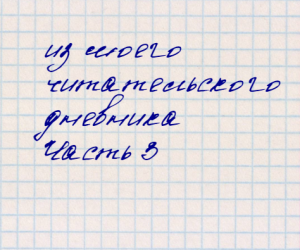 из моего
читательского
дневника
Часть 3